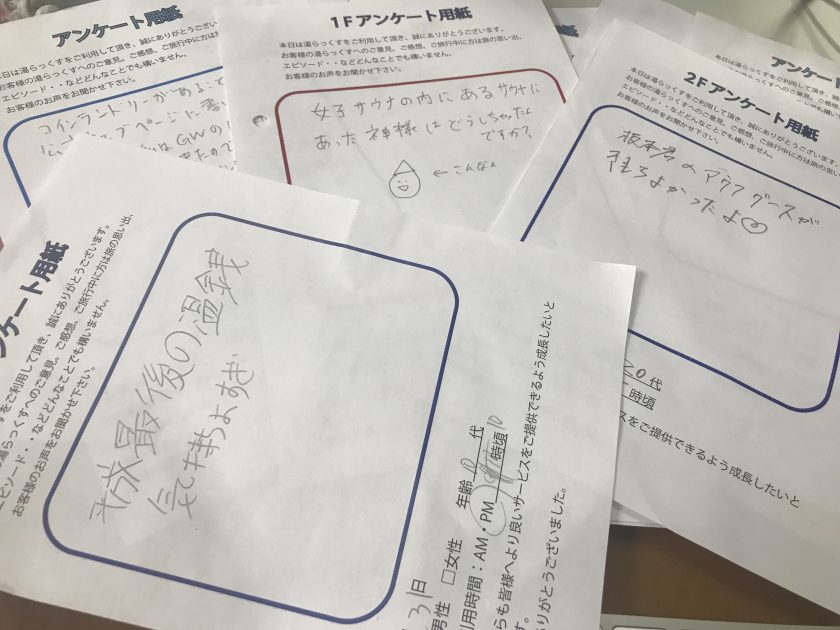 アンケート用紙
本日は湯らっくすをご利用して頂き、誠にありがとうございます。
お客様の湯らっくすへのご意見。ご感想、ご旅行中に方は
エピソード・・などどんなことでも構いません。
お客様のお声をお聞かせ下さい。
コインランドリーがある
ェブページに
はGWの
1Fアンケート用紙
本日は湯らっくすをご利用して頂き、誠にありがとうございます。
お客様の湯らっくすへのご意見。ご感想、ご旅行中に方は旅の思い出、
エピソード・・などどんなことでも構いません。
お客様のお声をお聞かせ下さい。
女子サウナの内にあるサウナに
あった神様はどうしちゃったん
ですか?
←こんなん
アンケート
2Fアンケート用紙
本日は湯らっくすをご利用して頂き、誠にありがとうございます。
お客様の湯らっくすへのご意見。ご感想、ご旅行中に方は旅の思い出、
エピソード・・などどんなことでも構いません。
お客様のお声をお聞かせ下さい。
坂本君のアウフグースが
よかったよ
20代
時頃
スをご提供できるよう成長したいと
ンケート用紙
をご利用して頂き、誠にありがとうございます。
の湯らっくすへのご意見。ご感想、ご旅行中に方は旅の思い出、
エピソード・・などどんなことでも構いません。
お客様のお声をお聞かせ下さい。
平成最後の温銭
気持ちよすぎ
31日
男性 □女性 年齢 代
利用時間:AM・PM 10時頃
らも皆様へより良いサービスをご提供できるよう成長したいと
す。
ありがとうございました。